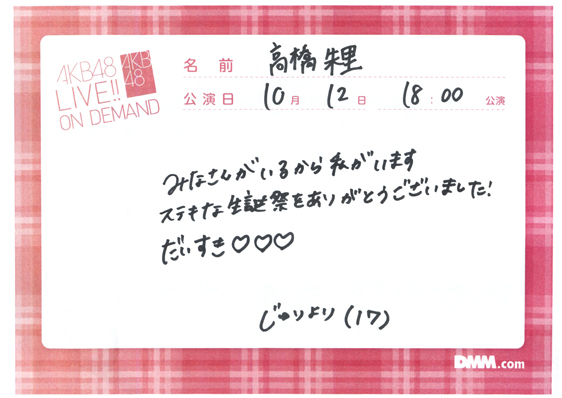 AKB48
LIVE!!
ON DEMAND
AKB
48
名前 高橋朱里
公演日 10月 12日 18:00 公演
みなさんがいるから私がいます
ステキな生誕祭をありがとうございました!
だいすき♡♡♡
じゅりより(17)
DMM.com